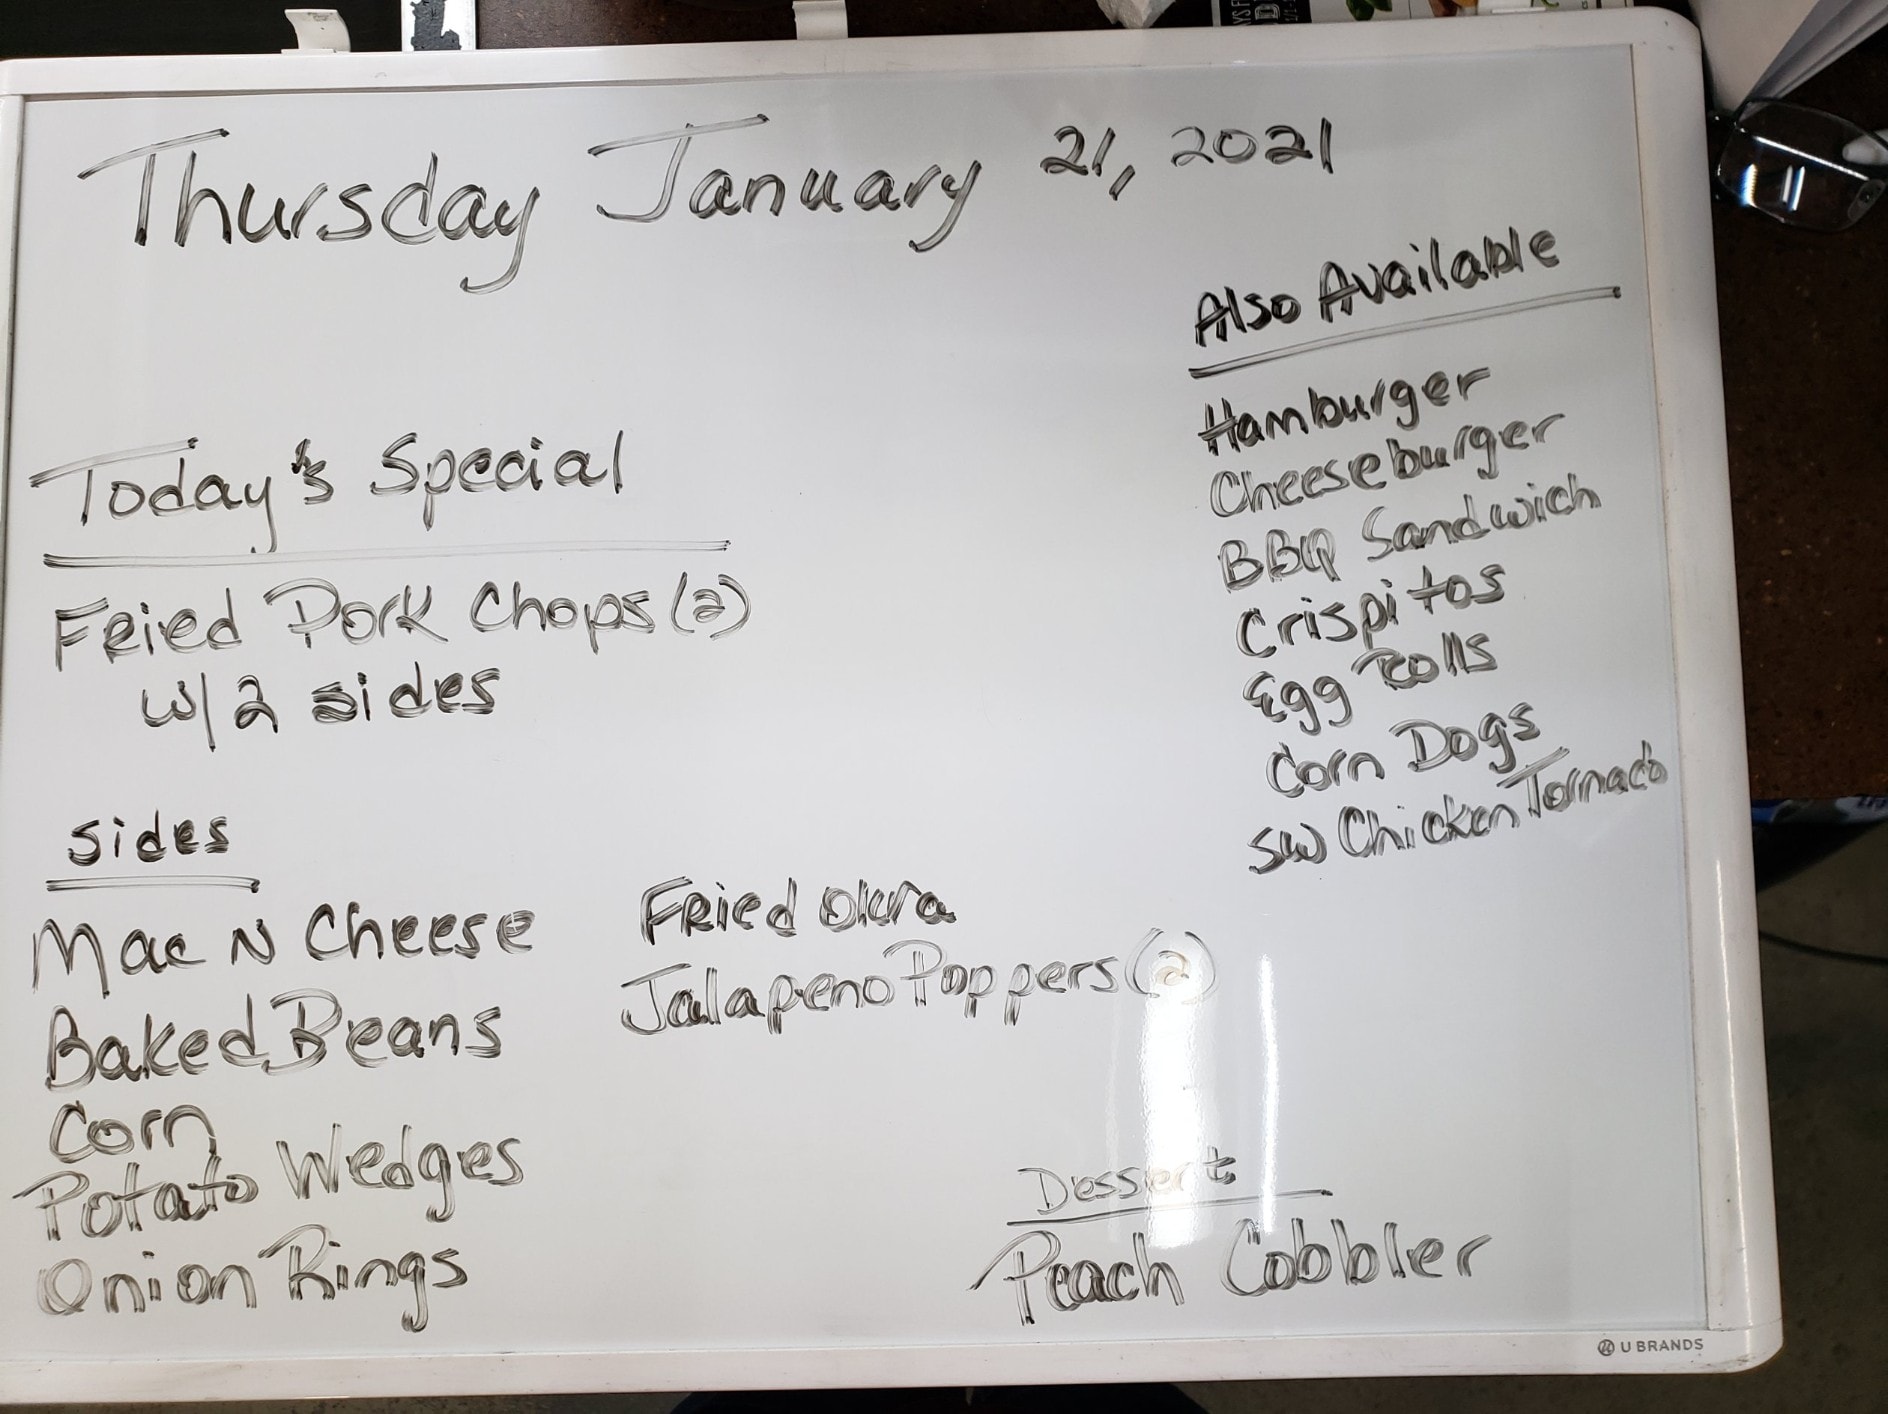 Thursday January 21, 2021
Today's Special
Fried Pork Chops (2)
w/ 2 sides
Sides
Mac N Cheese
Baked Beans
Corn
Potato Wedges
Onion Rings
Fried Okra
Jalapeno Poppers (2)
Also Available
Hamburger
Cheeseburger
BBQ Sandwich
Crispitos
Egg Rolls
Corn Dogs
SW Chicken Tornado
Dessert
Peach Cobbler
U BRANDS